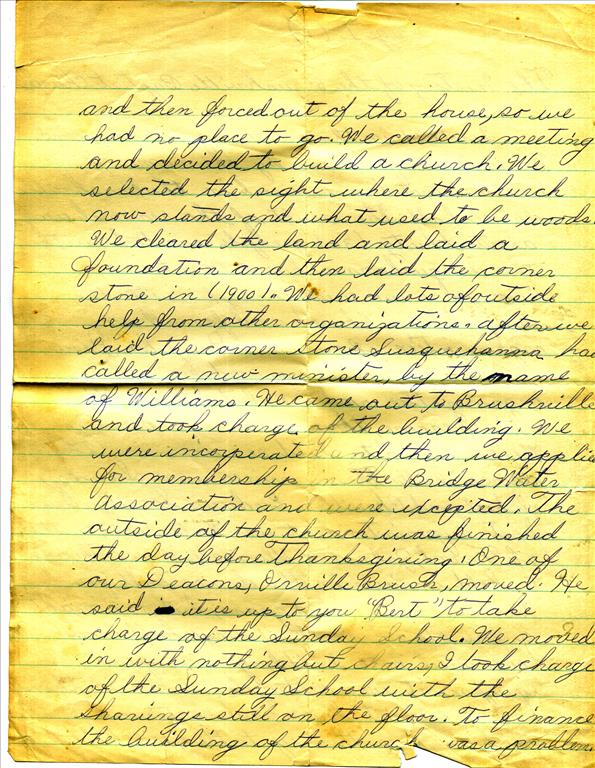 and then forced out of the house, so we
had no place to go. We called a meeting
and decided to build a church. We
selected the sight where the church
now stands and what used to be woods.
We cleared the land and laid a
foundation and then laid the corner
stone in (1900). We had lots of outside
help from other organizations. after we
laid the corner stone Susquehanna had
called a new minister, by the name
of Williams. He came out to Brushville
and took charge of the building. We
were incorperated and then we applied
for membership in the Bridge Water
Association and were excepted. The
outside of the church was finished
the day before Thanksgiving. One of
our Deacons, Orville Brush, moved. He
said it is up to you "Bert" to take
charge of the Sunday School. We moved
in with nothing but chairs, I took charge
of the Sunday School with the
shavings still on the floor. To finance
the building of the church was a problem.